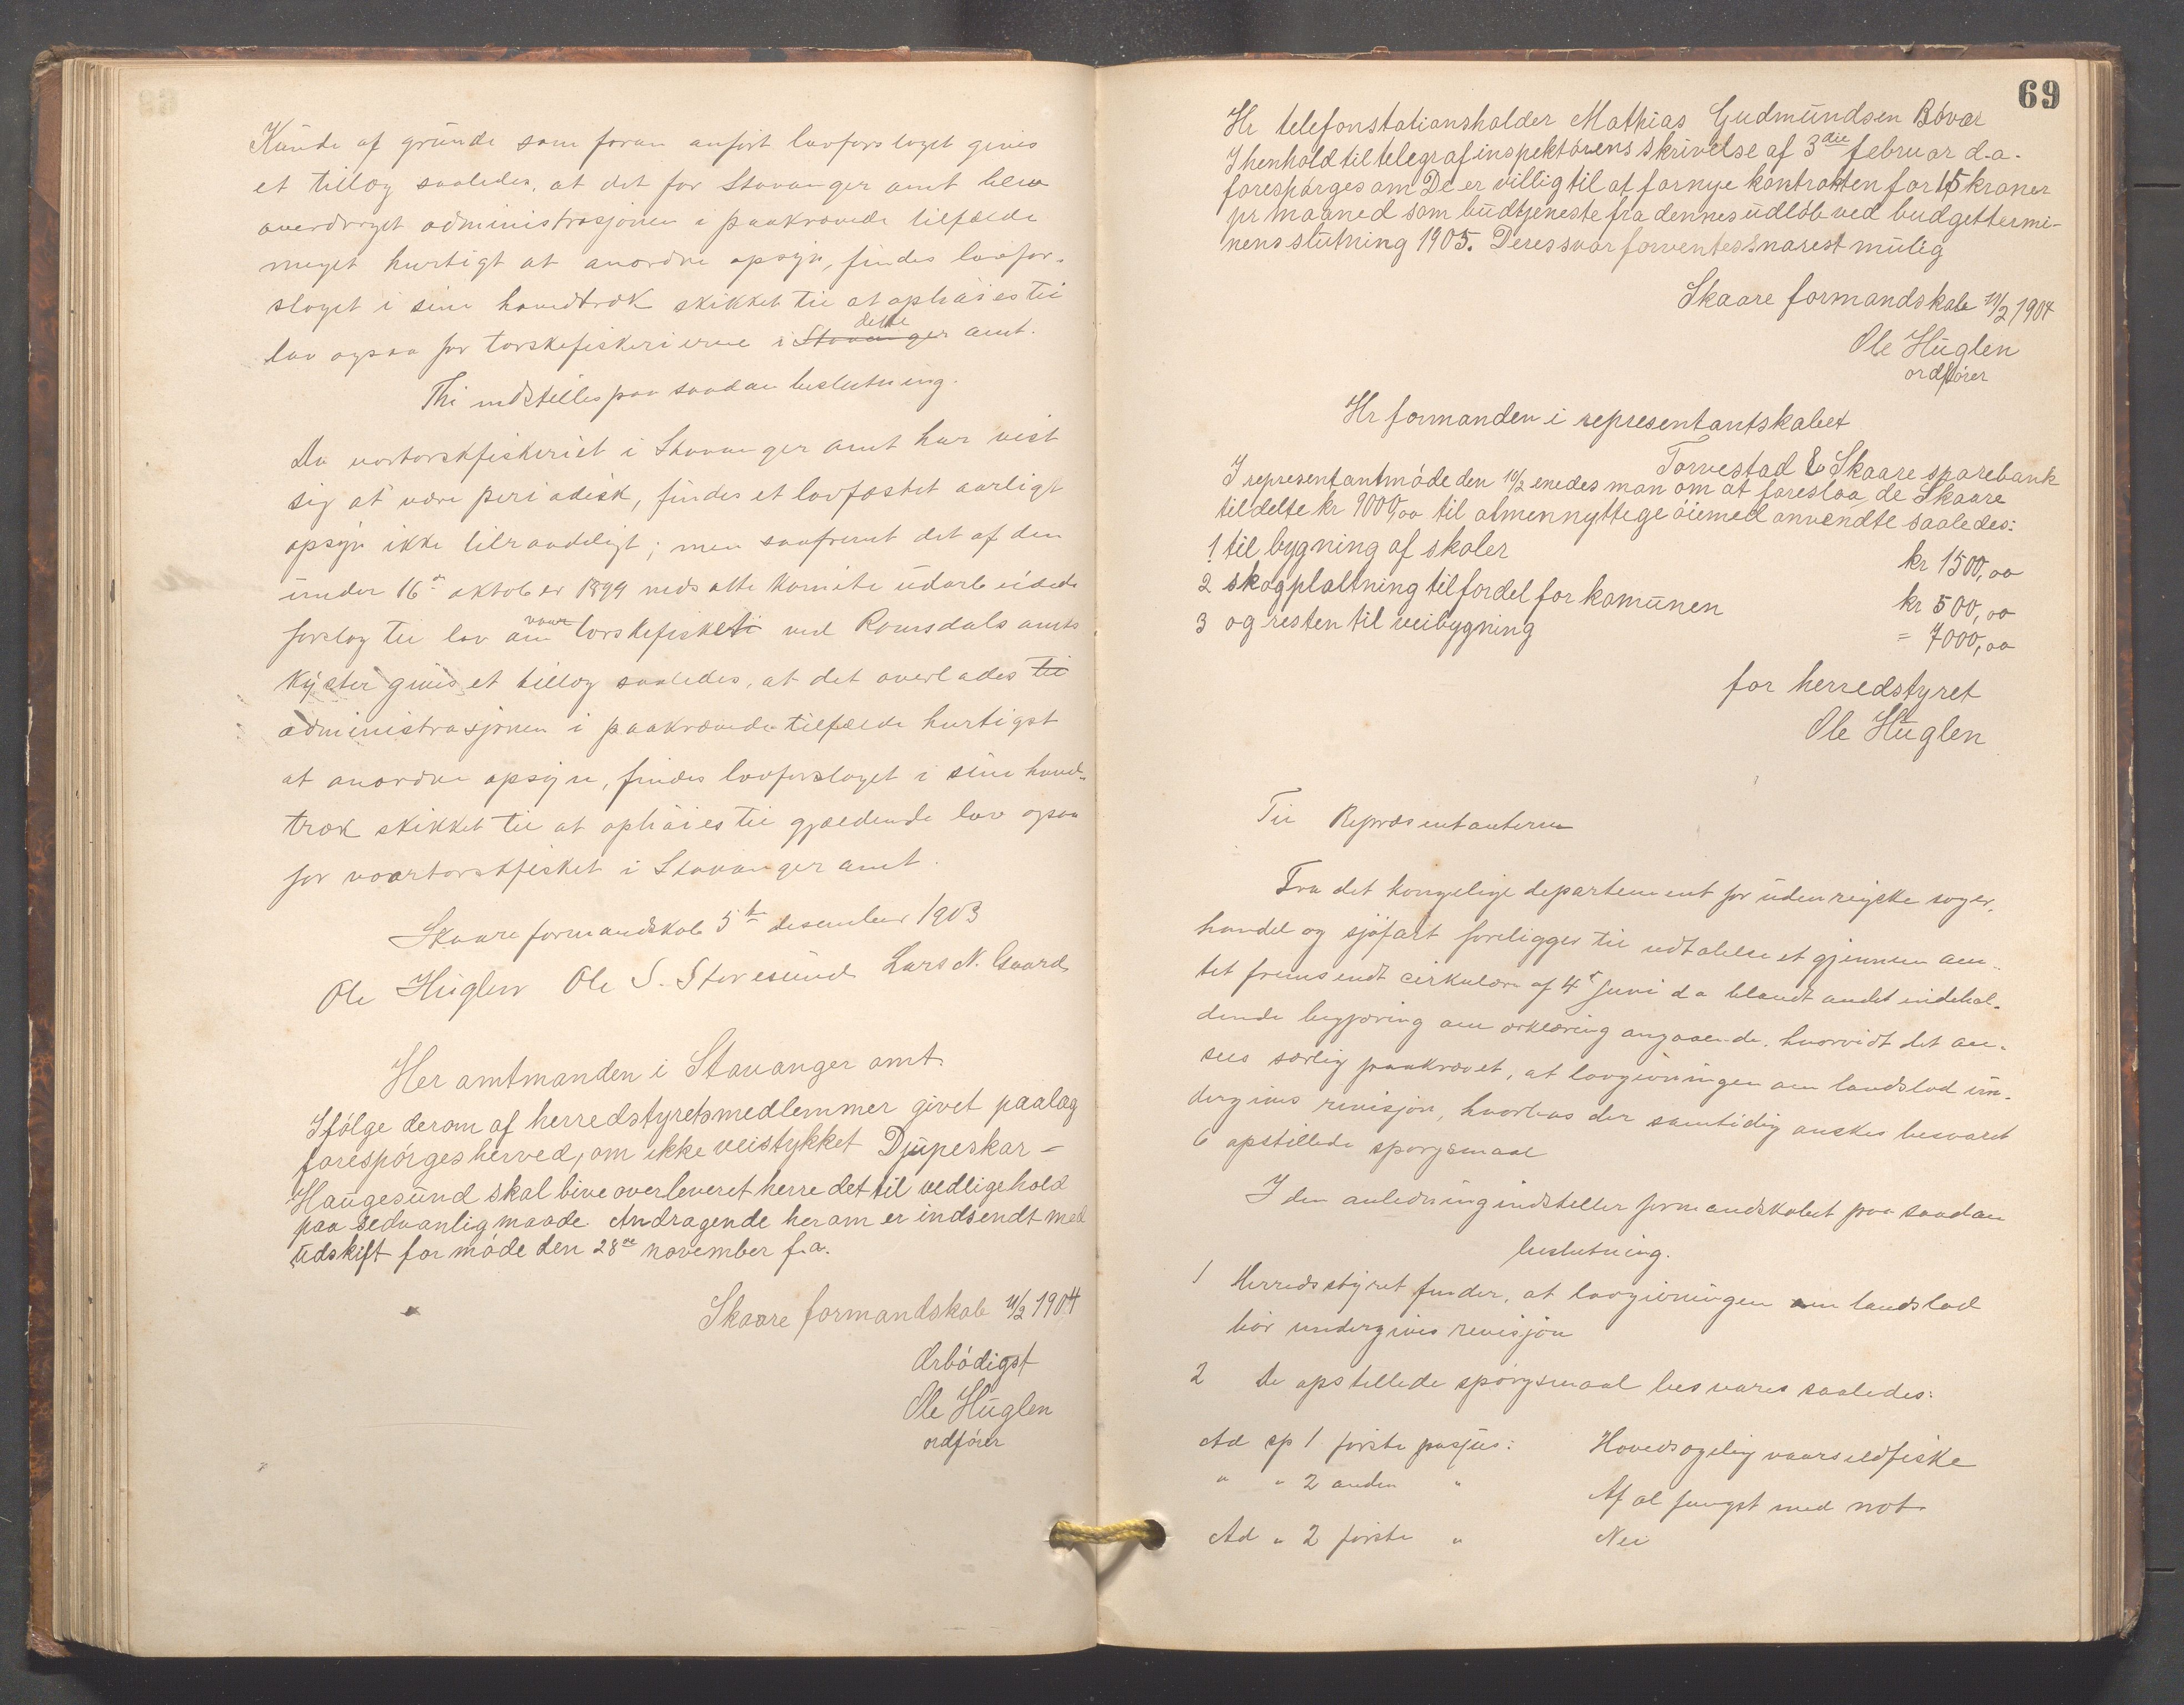 Kunde af grunde som foran anført lovforslaget gives
et tillæg saaledes, at det for Stavanger amt blev
overdraget administrasjonen i paakrævede tilfælde
meget hurtigt at anordne opsyn, findes lovfor-
slaget i sine hovedtræk skikket til at ophøies til
lov ogsaa for torskefiskerierne i Stavanger dette amt.
Thi indstilles paa saadan beslutning.
Da vortorskfiskeriet i Stavanger amt har vist
sig at være periodisk, findes et lovfæstet aarligt
opsyn ikke tilraadeligt; men saafremt det af den
under 16de oktober 1899 nedsatte komite udarbeidede
forslag til lov om vaar torskefisket ved Romsdals amts
kyster gives et tillæg saaledes, at det overlades til
administrasjonen i paakrævede tilfælde hurtigst
at anordne opsyn, findes lovforslaget i sine hoved-
træk skikket til at ophøies til gjældende lov ogsaa
for vaartorskfisket i Stavanger amt.
Skaare formandskab 5te desember 1903
Ole Huglen Ole S. Storesund Lars N. Gaard
Her amtmanden i Stavanger amt.
Ifølge derom af herredstyretsmedlemmer givet paalæg
forespørges herved, om ikke veistykket Djupeskar-
Haugesund skal bive overleveret herredet til vedligehold
paa sedvanlig maade. Andragende herom er indsendt med
udskift for møde den 28de november f.a.
Skaare formandskab 11/2 1904
Ærbødigst
Ole Huglen
ordfører
69
Hr telefonstationsholder Mathias Gudmundsen Røvær
I henhold til telegrafinspektørens skrivelse af 3die februar d.a.
forespørges om De er villig til at fornye kontrakten for 15 kroner
pr maaned som budtjeneste fra dennes udløb ved budgettermi-
nens slutning 1905. Deres svar forventes snarest mulig
Skaare formandskab 11/2 1904
Ole Huglen
ordfører
Hr formanden i representantskabet
Torvestad & Skaare sparebank
I representantmøde den 10/2 enedes man om at foreslaa de Skaare
tildelte kr 9000,00 til almennyttege øiemed anvendte saaledes:
1 til bygning af skoler kr 1500,00
2 skogplaltning til fordel for komunen kr 500,00
3 og resten til veibygning = 7000,00
for herredstyret
Ole Huglen
Til Repræsentanterne
Fra det kongelige departement for udenrigske sager,
handel og sjøfart foreligger til udtalelse et gjennem am-
tet fremsendt cirkulære af 4de juni d a blandt andet indehol-
dende begjæring om erklæring angaaende, hvorvidt det an-
sees særlig paakrævet, at lovgivningen om landslod un-
dergives revisjon, hvorhos der samtidig ønskes besvaret
6 opstillede spørgsmaal
I den anledning indstiller formandskabet paa saadan
beslutning.
1 Herredsstyret finder, at lovgivningen om landslod
bør undergives revisjon
2 De opstillede spørgsmaal besvares saaledes:
Ad sp 1 første passus: Hovedsagelig vaarsildfiske
" " 2 anden " Af al fangst med not.
Ad " 2 første " Nei